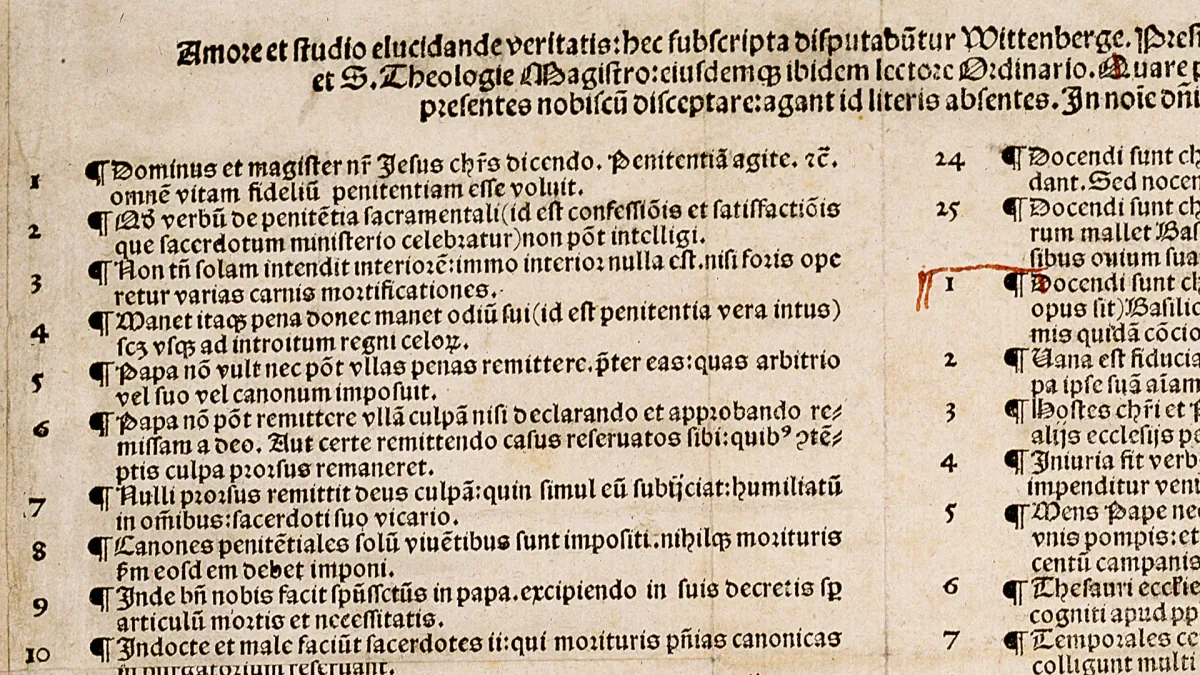 Amore et studio elucidande veritatis: hec subscripta disputabũtur Wittenberge. Presi
et S. Theologie Magistro: eiusdemꝙ ibidem lectore Ordinario. Quare p
presentes nobiscũ disceptare: agant id literis absentes. In noĩe dñi
1 ¶ Dominus et magister nr̃ Jesus chr̃s dicendo. Penitentiã agite. ⁊c̃.
omnẽ vitam fideliũ penitentiam esse voluit.
2 ¶ Qđ verbũ de penitẽtia sacramentali (id est confessiõis et satisfactiõis
que sacerdotum ministerio celebratur) non põt intelligi.
3 ¶ Non tñ solam intendit interiorẽ: immo interior nulla est. nisi foris ope
retur varias carnis mortificationes.
4 ¶ Manet itaꝙ pena donec manet odiũ sui (id est penitentia vera intus)
scꝫ vsꝙ ad introitum regni celoꝝ.
5 ¶ Papa nõ vult nec põt vllas penas remittere. p̃ter eas: quas arbitrio
vel suo vel canonum imposuit.
6 ¶ Papa nõ põt remittere vllã culpã nisi declarando et approbando re⸗
missam a deo. Aut certe remittendo casus reseruatos sibi: quibꝰ ↄtẽ⸗
ptis culpa prorsus remaneret.
7 ¶ Nulli prorsus remittit deus culpã: quin simul eũ subijciat: humiliatũ
in om̃ibus: sacerdoti suo vicario.
8 ¶ Canones penitẽtiales solũ viuẽtibus sunt impositi. nihilꝙ morituris
ẜm eosd em debet imponi.
9 ¶ Inde bñ nobis facit sp̃ussctũs in papa. excipiendo in suis decretis sp̱
articulũ mortis et necessitatis.
10 ¶ Indocte et male faciũt sacerdotes ii: qui morituris pñias canonicas
in purgatorium reseruant.
24 ¶ Docendi sunt ch
dant. Sed nocen
25 ¶ Docendi sunt ch
rum mallet Bas
sibus ouium sua
1 ¶ Docendi sunt ch
opus sit) Basilic
mis quidã cõcio
2 ¶ Vana est fiducia
pa ipse suã aĩam
3 ¶ Hostes chr̃i et P
alijs ecclesijs pe
4 ¶ Iniuria fit verb
impenditur veni
5 ¶ Mens Pape nec
vnis pompis: et
centũ campanis
6 ¶ Thesauri eccl'ie
cogniti apud pp
7 ¶ Temporales ce
colligunt multi